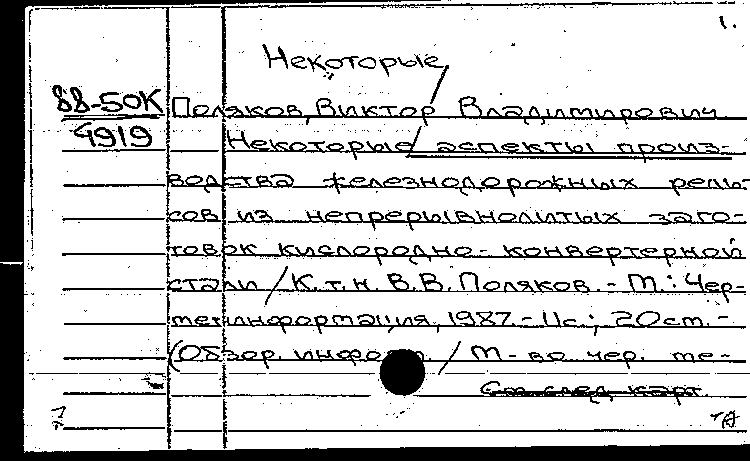 1.
Некоторые
88-50К Поляков, Виктор Владимирович
4919 Некоторые/ аспекты произ-
водства железнодорожных рель-
сов из непрерывнолитых заго-
товок кислородно-конвертерной
стали / К.т.н. В.В. Поляков. - М.: Чер-
метинформация, 1987. - 11с.; 20см. -
(Обзор. информ. / М-во чер. ме-
См. след. карт.